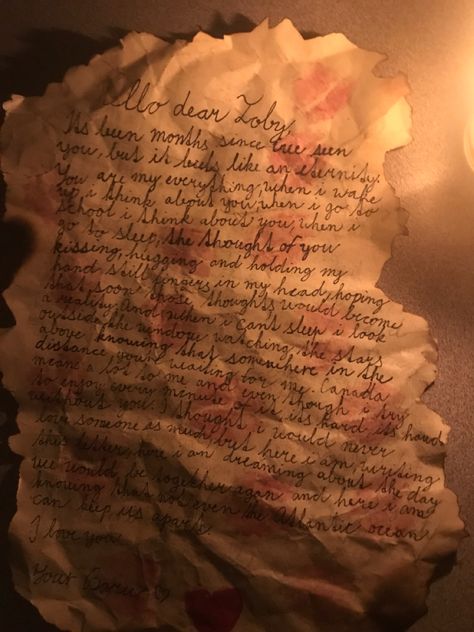 llo dear Toby,
Its been months since ive seen
you, but it feels like an eternity.
You are my everything, when i wake
up i think about you, when i go to
school i think about you, when i
go to sleep, the thought of you
kissing, hugging and holding my
hand still lingers in my head, hoping
that soon those thoughts would become
a reality. And when i cant sleep i look
outside the window watching the stars
above knowing that somewhere in the
distance your waiting for me. Canada
means a lot to me and even though i try
to enjoy every menuse of it its hard. its hard
without you. I thought i would never
love someone as much, but here i am, writing
this letter, here i am dreaming about the day
we would be together again and here i am
knowing that not even the Atlantic ocean
can keep us apart.
I love you